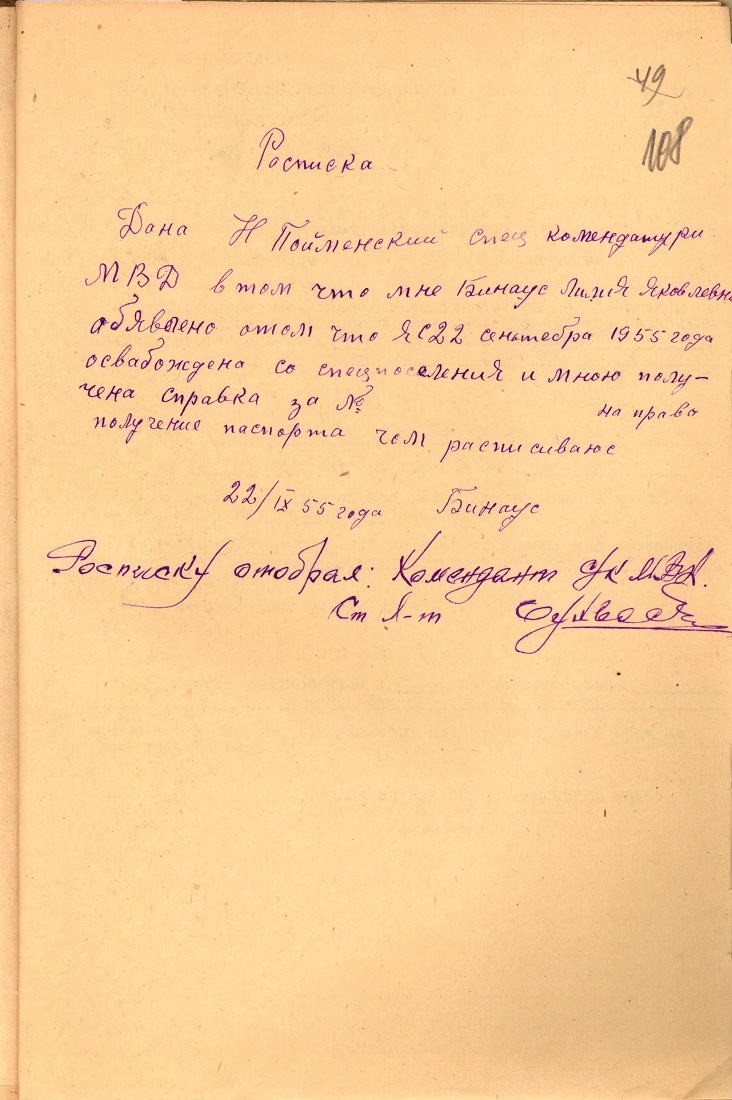 49
108
Росписка
Дана Н Пойменский спец комендатури
МВД в том что мне Бинаус Лилия Яковлевна
обявлено отом что я с 22 сентебра 1955 года
освабождена со спецпоселения и мною полу-
чена справка за № на право
получение паспорта чем расписиваюс
22/IX 55 года Бинаус
Росписку отобрал: Комендант СК МВД.
Ст Л-т